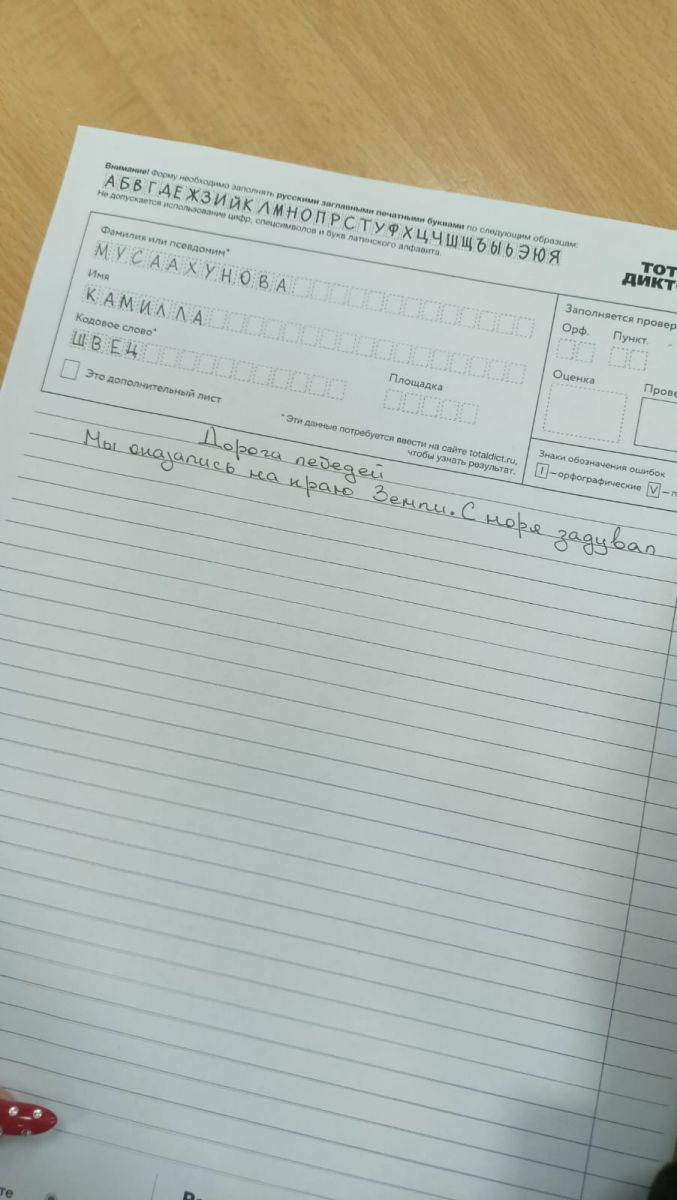 Внимание! Форму необходимо заполнять русскими заглавными печатными буквами по следующим образцам:
АБВГДЕЖЗИЙКЛМНОПРСТУФХЦЧШЩЪЫЬЭЮЯ
Не допускается использование цифр, спецсимволов и букв латинского алфавита.
ТОТ
ДИКТ
Фамилия или псевдоним*
МУСААХУНОВА
Имя
КАМИЛЛА
Кодовое слово*
ШВЕЦ
Площадка
Это дополнительный лист
* Эти данные потребуется ввести на сайте totaldict.ru,
чтобы узнать результат.
Заполняется провер
Орф. Пункт.
Оценка Прове
Знаки обозначения ошибок
I – орфографические V – п
Дорога лебедей
Мы оказались на краю Земли. С моря задувал